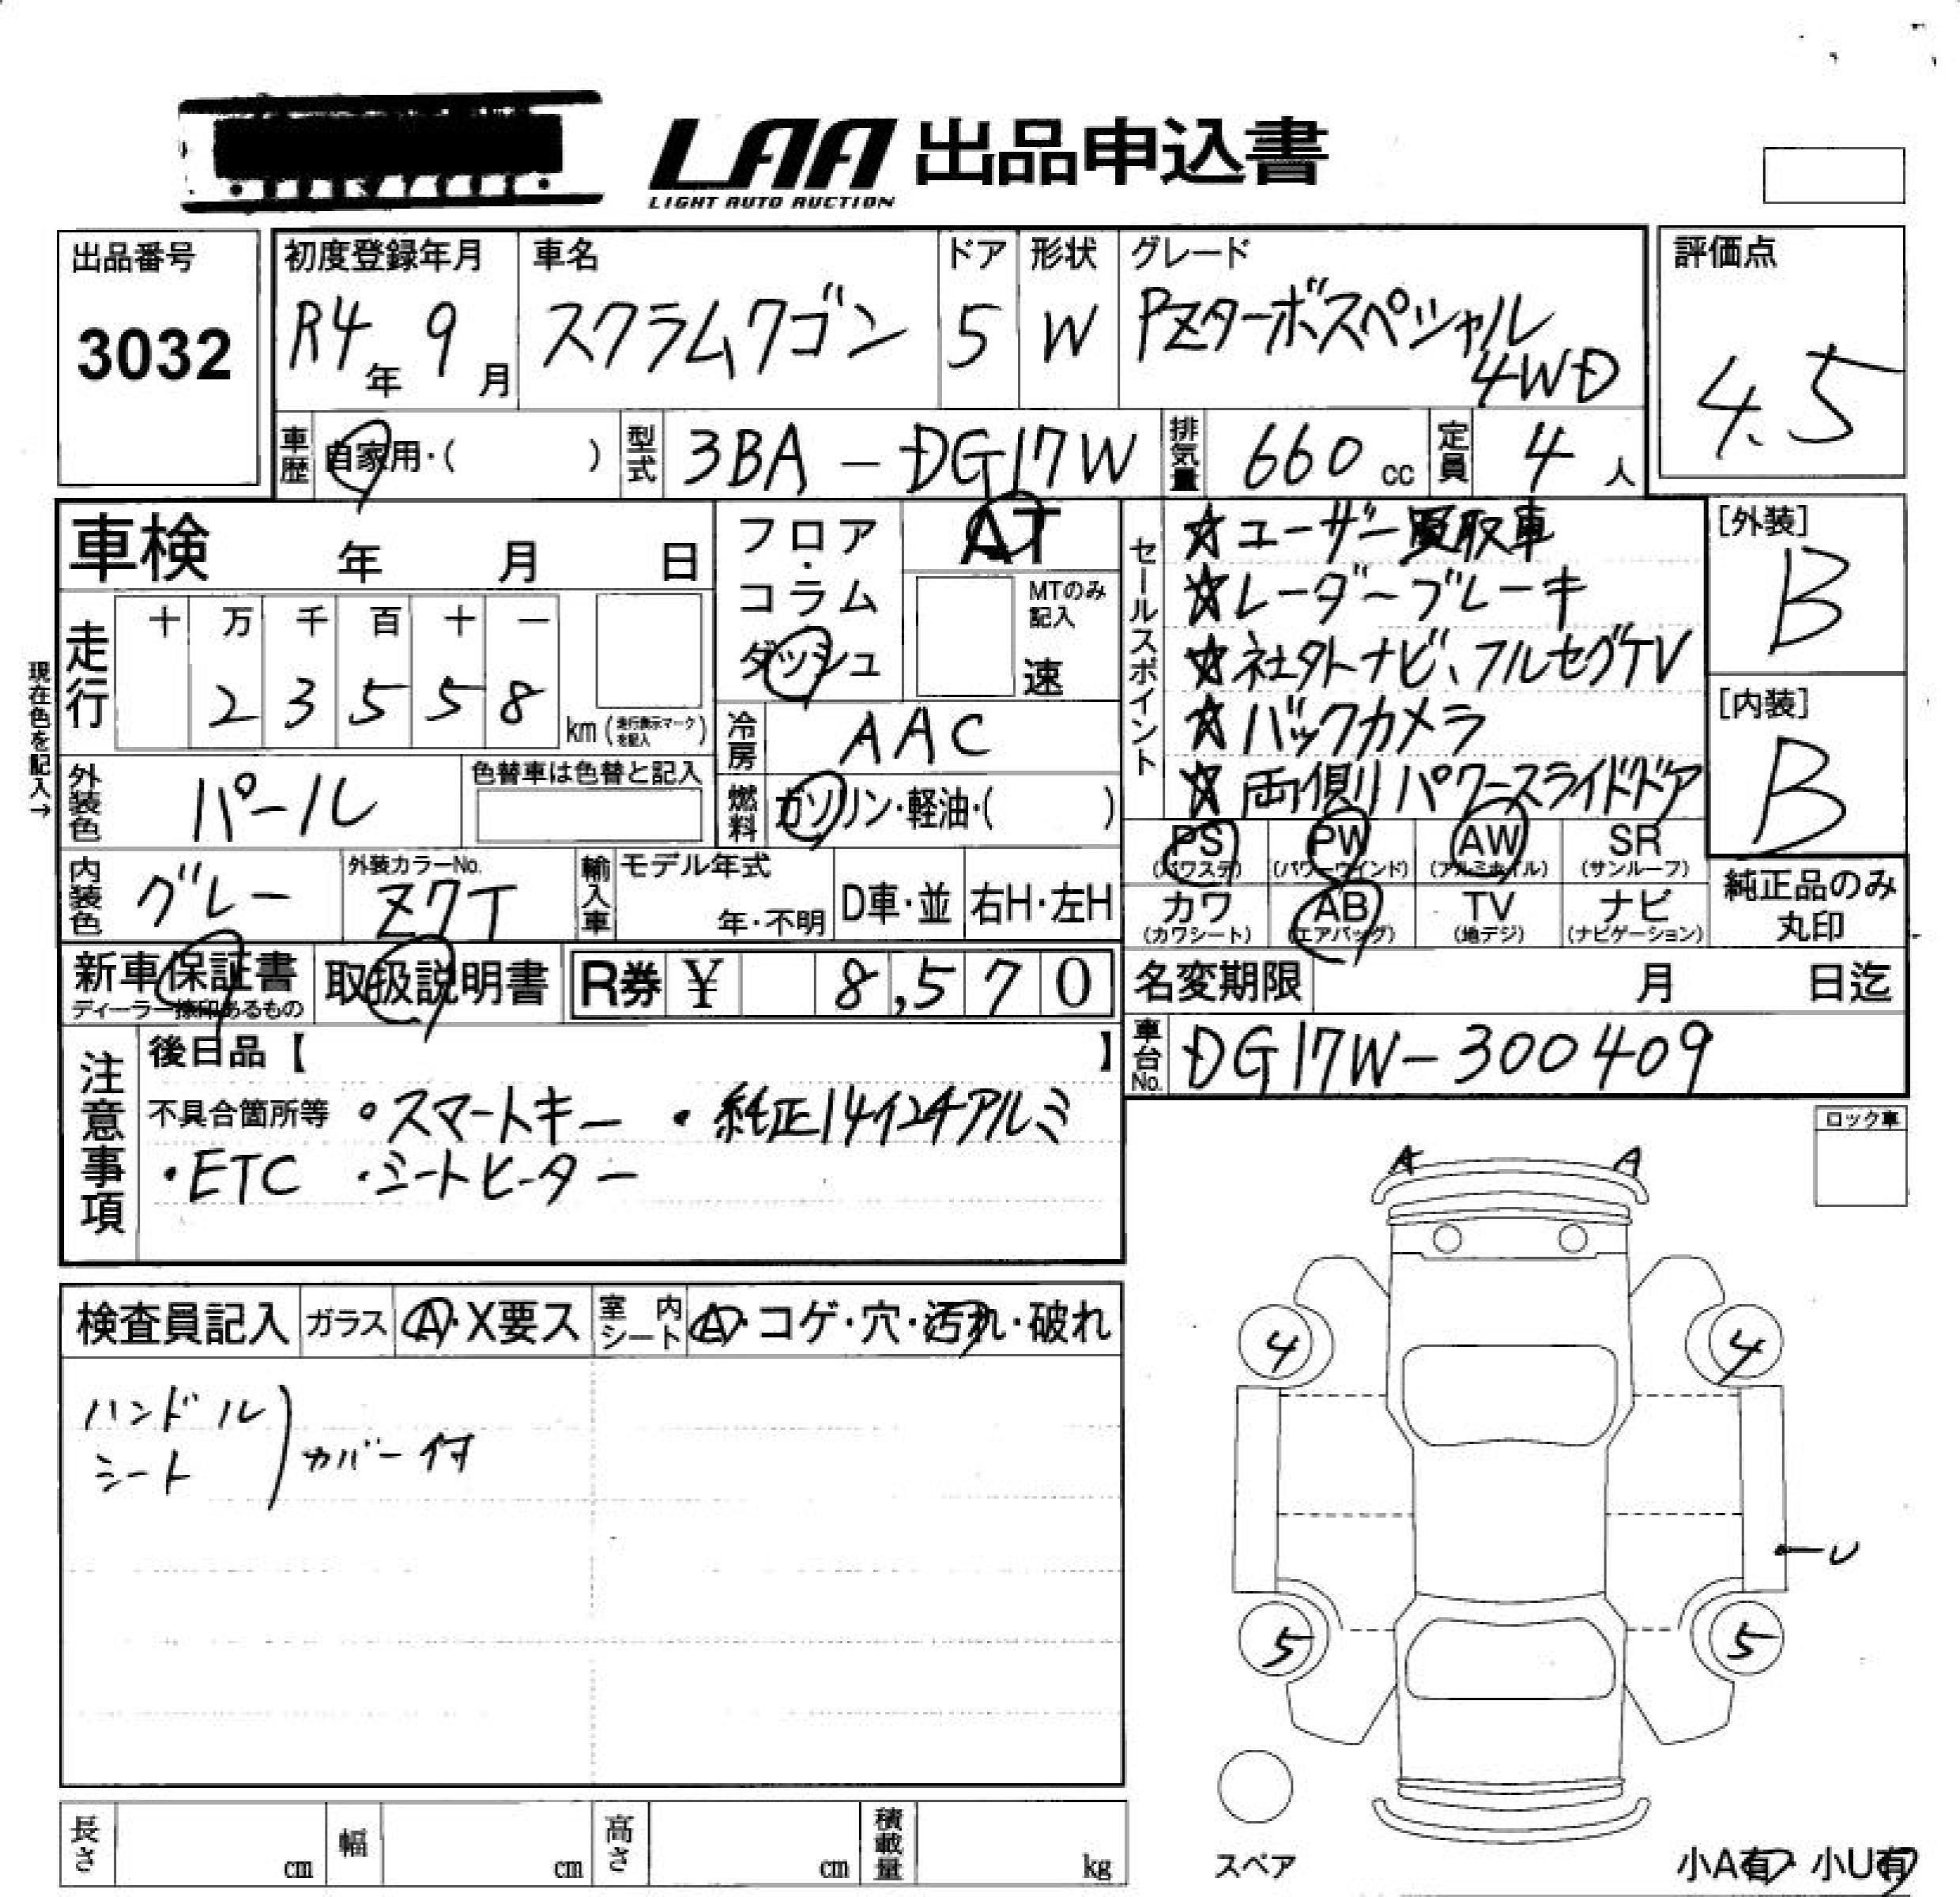 LAA 出品申込書
LIGHT AUTO AUCTION
出品番号
3032
初度登録年月
R4年 9月
車名
スクラムワゴン
ドア
5
形状
W
グレード
PZターボスペシャル
4WD
評価点
4.5
車歴 自家用・( )
型式 3BA-DG17W
排気量 660 cc
定員 4 人
車検 年 月 日
現在色を記入→
走行
十 万 千 百 十 一
2 3 5 5 8
km (走行表示マークを記入)
フロア・
コラム
ダッシュ
AT
MTのみ
記入
速
冷房 AAC
燃料 ガソリン・軽油・( )
外装色 パール
色替車は色替と記入
内装色 グレー
外装カラーNo.
Z7T
輸入車 モデル年式
年・不明
D車・並
右H・左H
セールスポイント
☆ユーザー買取車
☆レーダーブレーキ
☆社外ナビ、フルセグTV
☆バックカメラ
☆両側パワースライドドア
[外装]
B
[内装]
B
PS (パワステ) PW (パワーウインド) AW (アルミホイル) SR (サンルーフ)
カワ (カワシート) AB (エアバッグ) TV (地デジ) ナビ (ナビゲーション)
純正品のみ
丸印
新車保証書
ディーラー捺印あるもの
取扱説明書
R券 ¥ 8,570
名変期限 月 日迄
車台No. DG17W-300409
注意事項
後日品【 】
不具合箇所等 ・スマートキー ・純正14インチアルミ
・ETC ・シートヒーター
ロック車
検査員記入
ガラス A・X要ス
室内シート A・コゲ・穴・汚れ・破れ
ハンドル
シート
カバー付
A A
4 4
U
5 5
スペア
小A有・小U有
長さ cm
幅 cm
高さ cm
積載量 kg